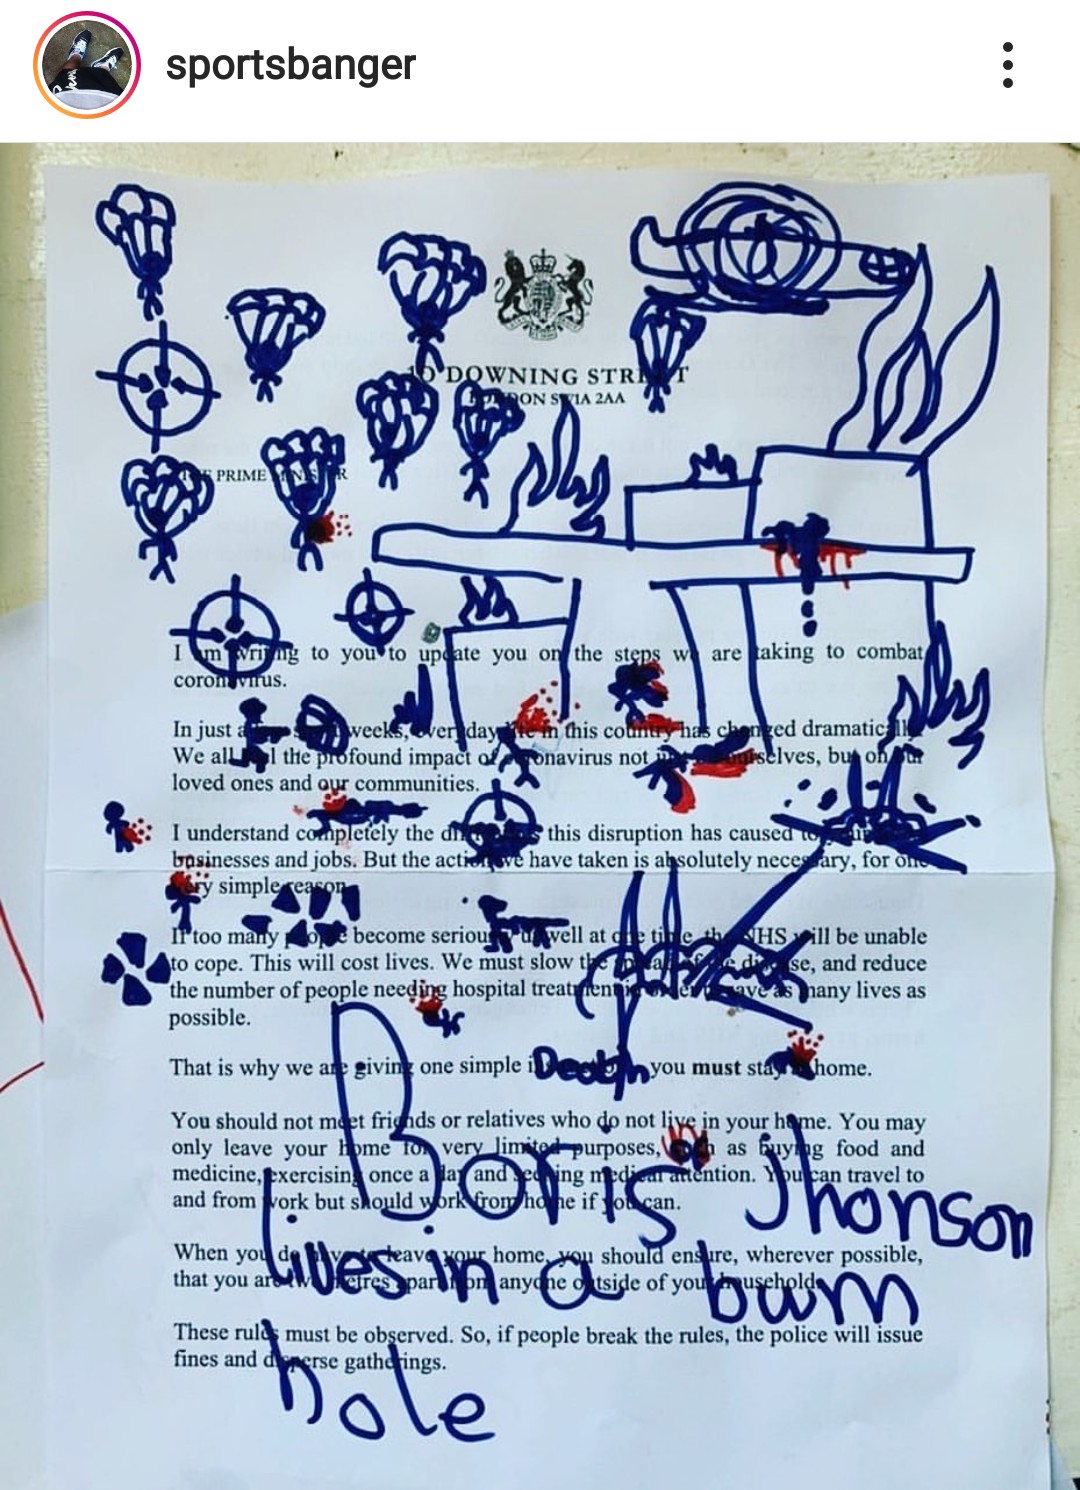 sportsbanger
10 DOWNING STREET
LONDON SW1A 2AA
THE PRIME MINISTER
I am writing to you to update you on the steps we are taking to combat
coronavirus.
In just a weeks, everyday life in this country has changed dramatically.
We all feel the profound impact of coronavirus not just on ourselves, but on our
loved ones and our communities.
I understand completely the this disruption has caused to your
businesses and jobs. But the action we have taken is absolutely necessary, for one
very simple reason.
If too many people become seriously unwell at one time, the NHS will be unable
to cope. This will cost lives. We must slow the spread of the disease, and reduce
the number of people needing hospital treatment in order to save as many lives as
possible.
That is why we are giving one simple you must stay home.
Death
You should not meet friends or relatives who do not live in your home. You may
only leave your home for very limited purposes, such as buying food and
medicine, exercising once a day and seeking medical attention. You can travel to
and from work but should work from home if you can.
Boris Jhonson
When you do have to leave your home, you should ensure, wherever possible,
that you are two metres apart from anyone outside of your household.
lives in a bum
These rules must be observed. So, if people break the rules, the police will issue
fines and disperse gatherings.
hole